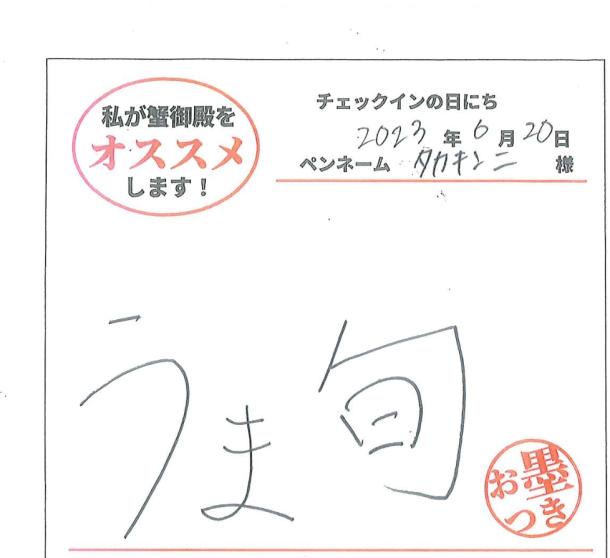 私が蟹御殿を
オススメ
します！
チェックインの日にち
2023年6月20日
ペンネーム タカキンニ 様
うま旬
お墨つき